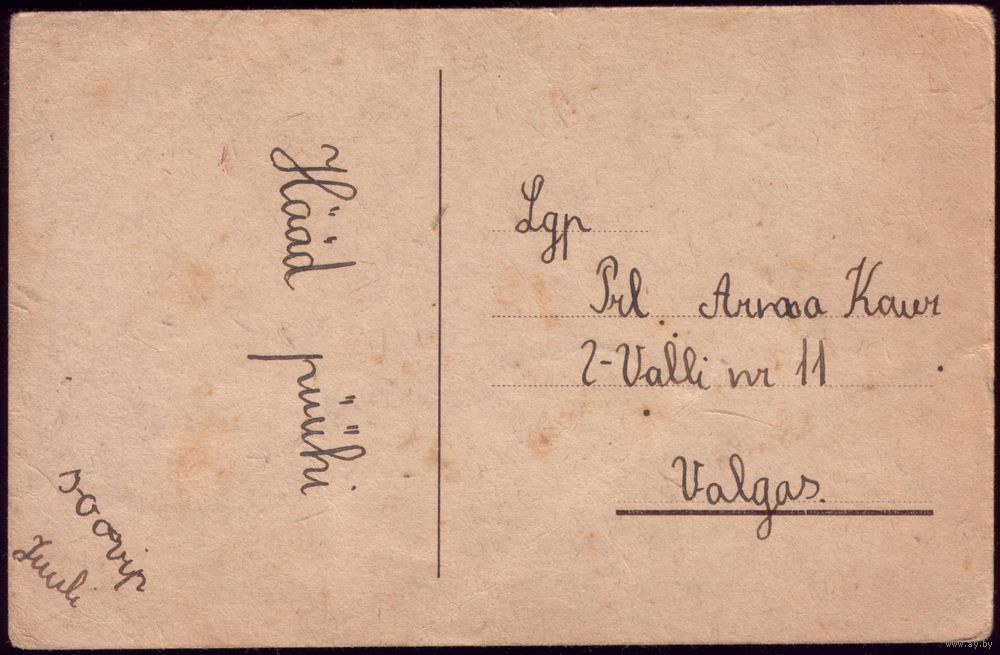 Hääd
püühi
soovip
Juuli
Lgp
Prl. Arvoa Kaur
2-Valli nr 11
Valgas.
www.ay.by